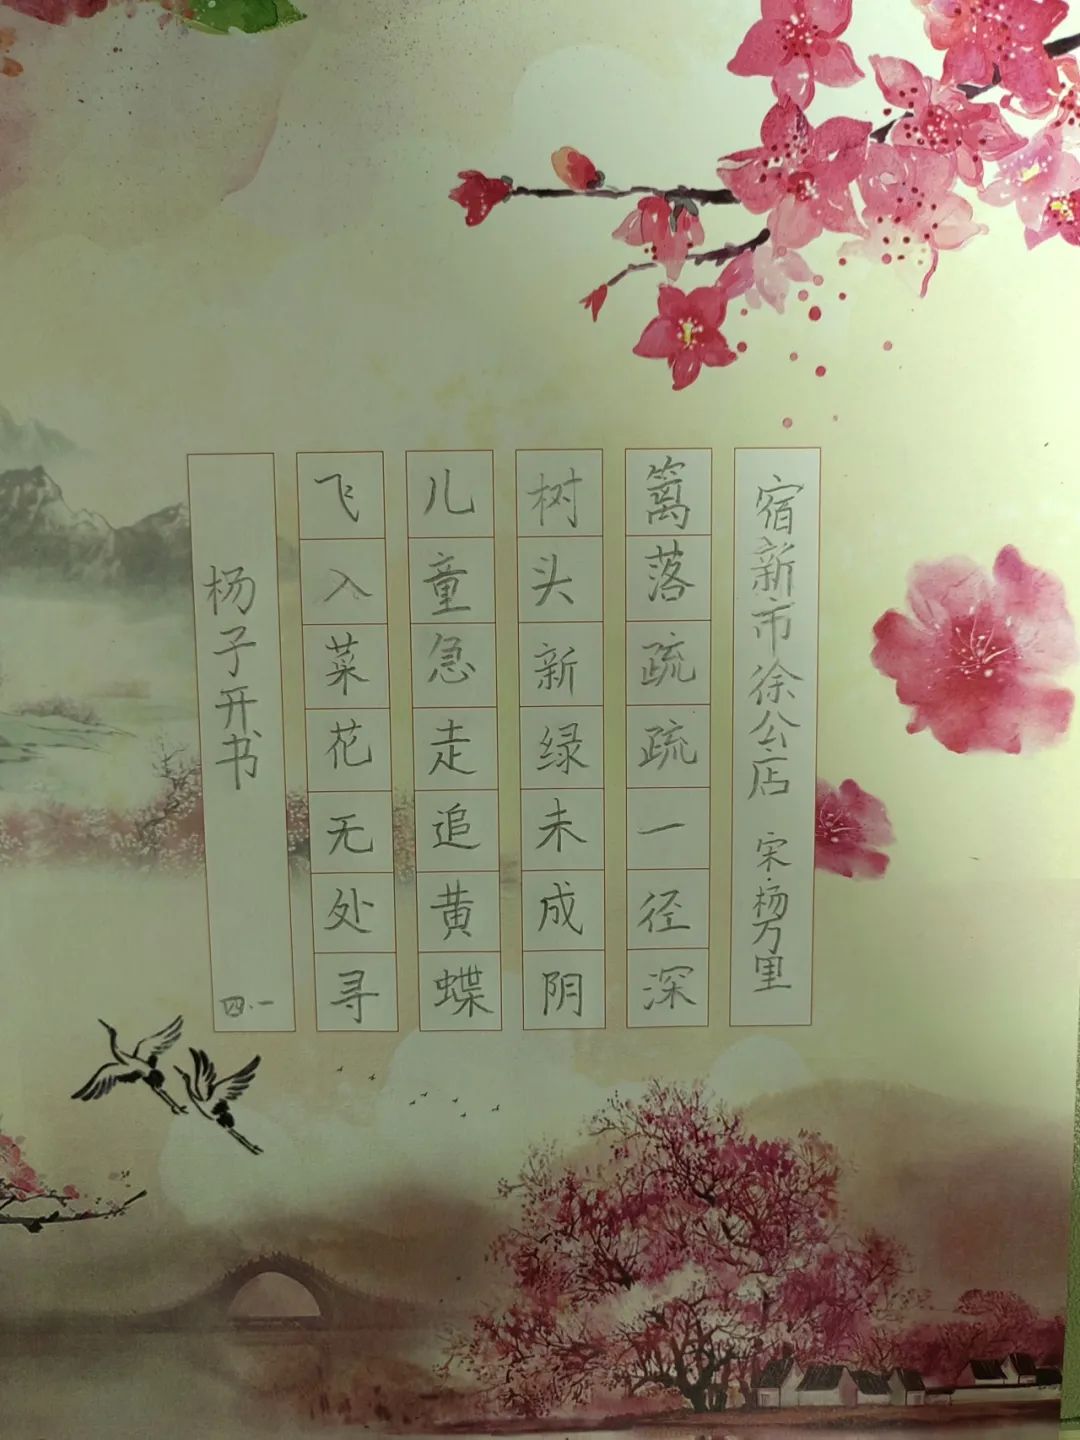 宿新市徐公店 宋·杨万里
篱落疏疏一径深
树头新绿未成阴
儿童急走追黄蝶
飞入菜花无处寻
杨子开书
四.一